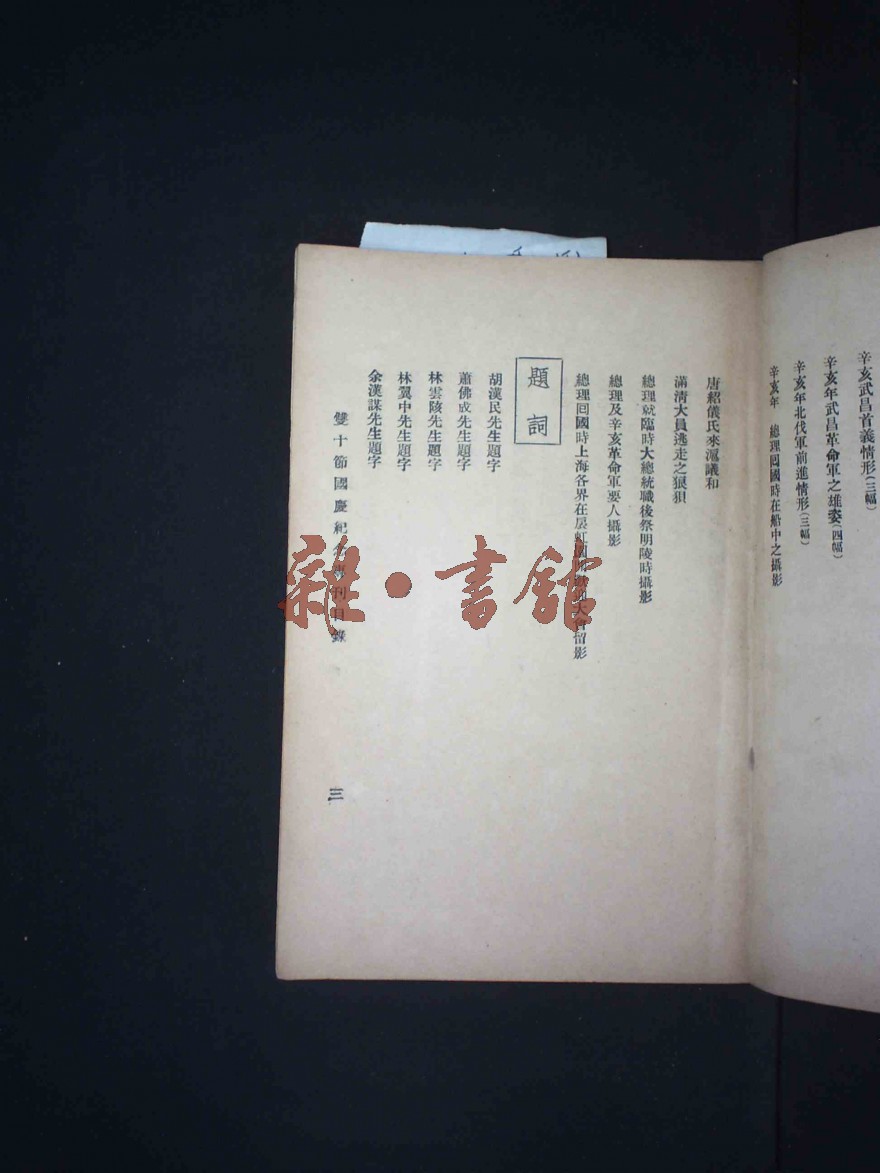 辛亥武昌首義情形(三幅)
辛亥年武昌革命軍之雄姿(四幅)
辛亥年北伐軍前進情形(三幅)
辛亥年 總理囘國時在船中之攝影
唐紹儀氏來滬議和
滿清大員逃走之狼狽
總理就臨時大總統職後祭明陵時攝影
總理及辛亥革命軍要人攝影
總理囘國時上海各界在
大會留影
題詞
胡漢民先生題字
蕭佛成先生題字
林雲陔先生題字
林翼中先生題字
余漢謀先生題字
雙十節國慶紀念專刊目錄
三
雜·書館